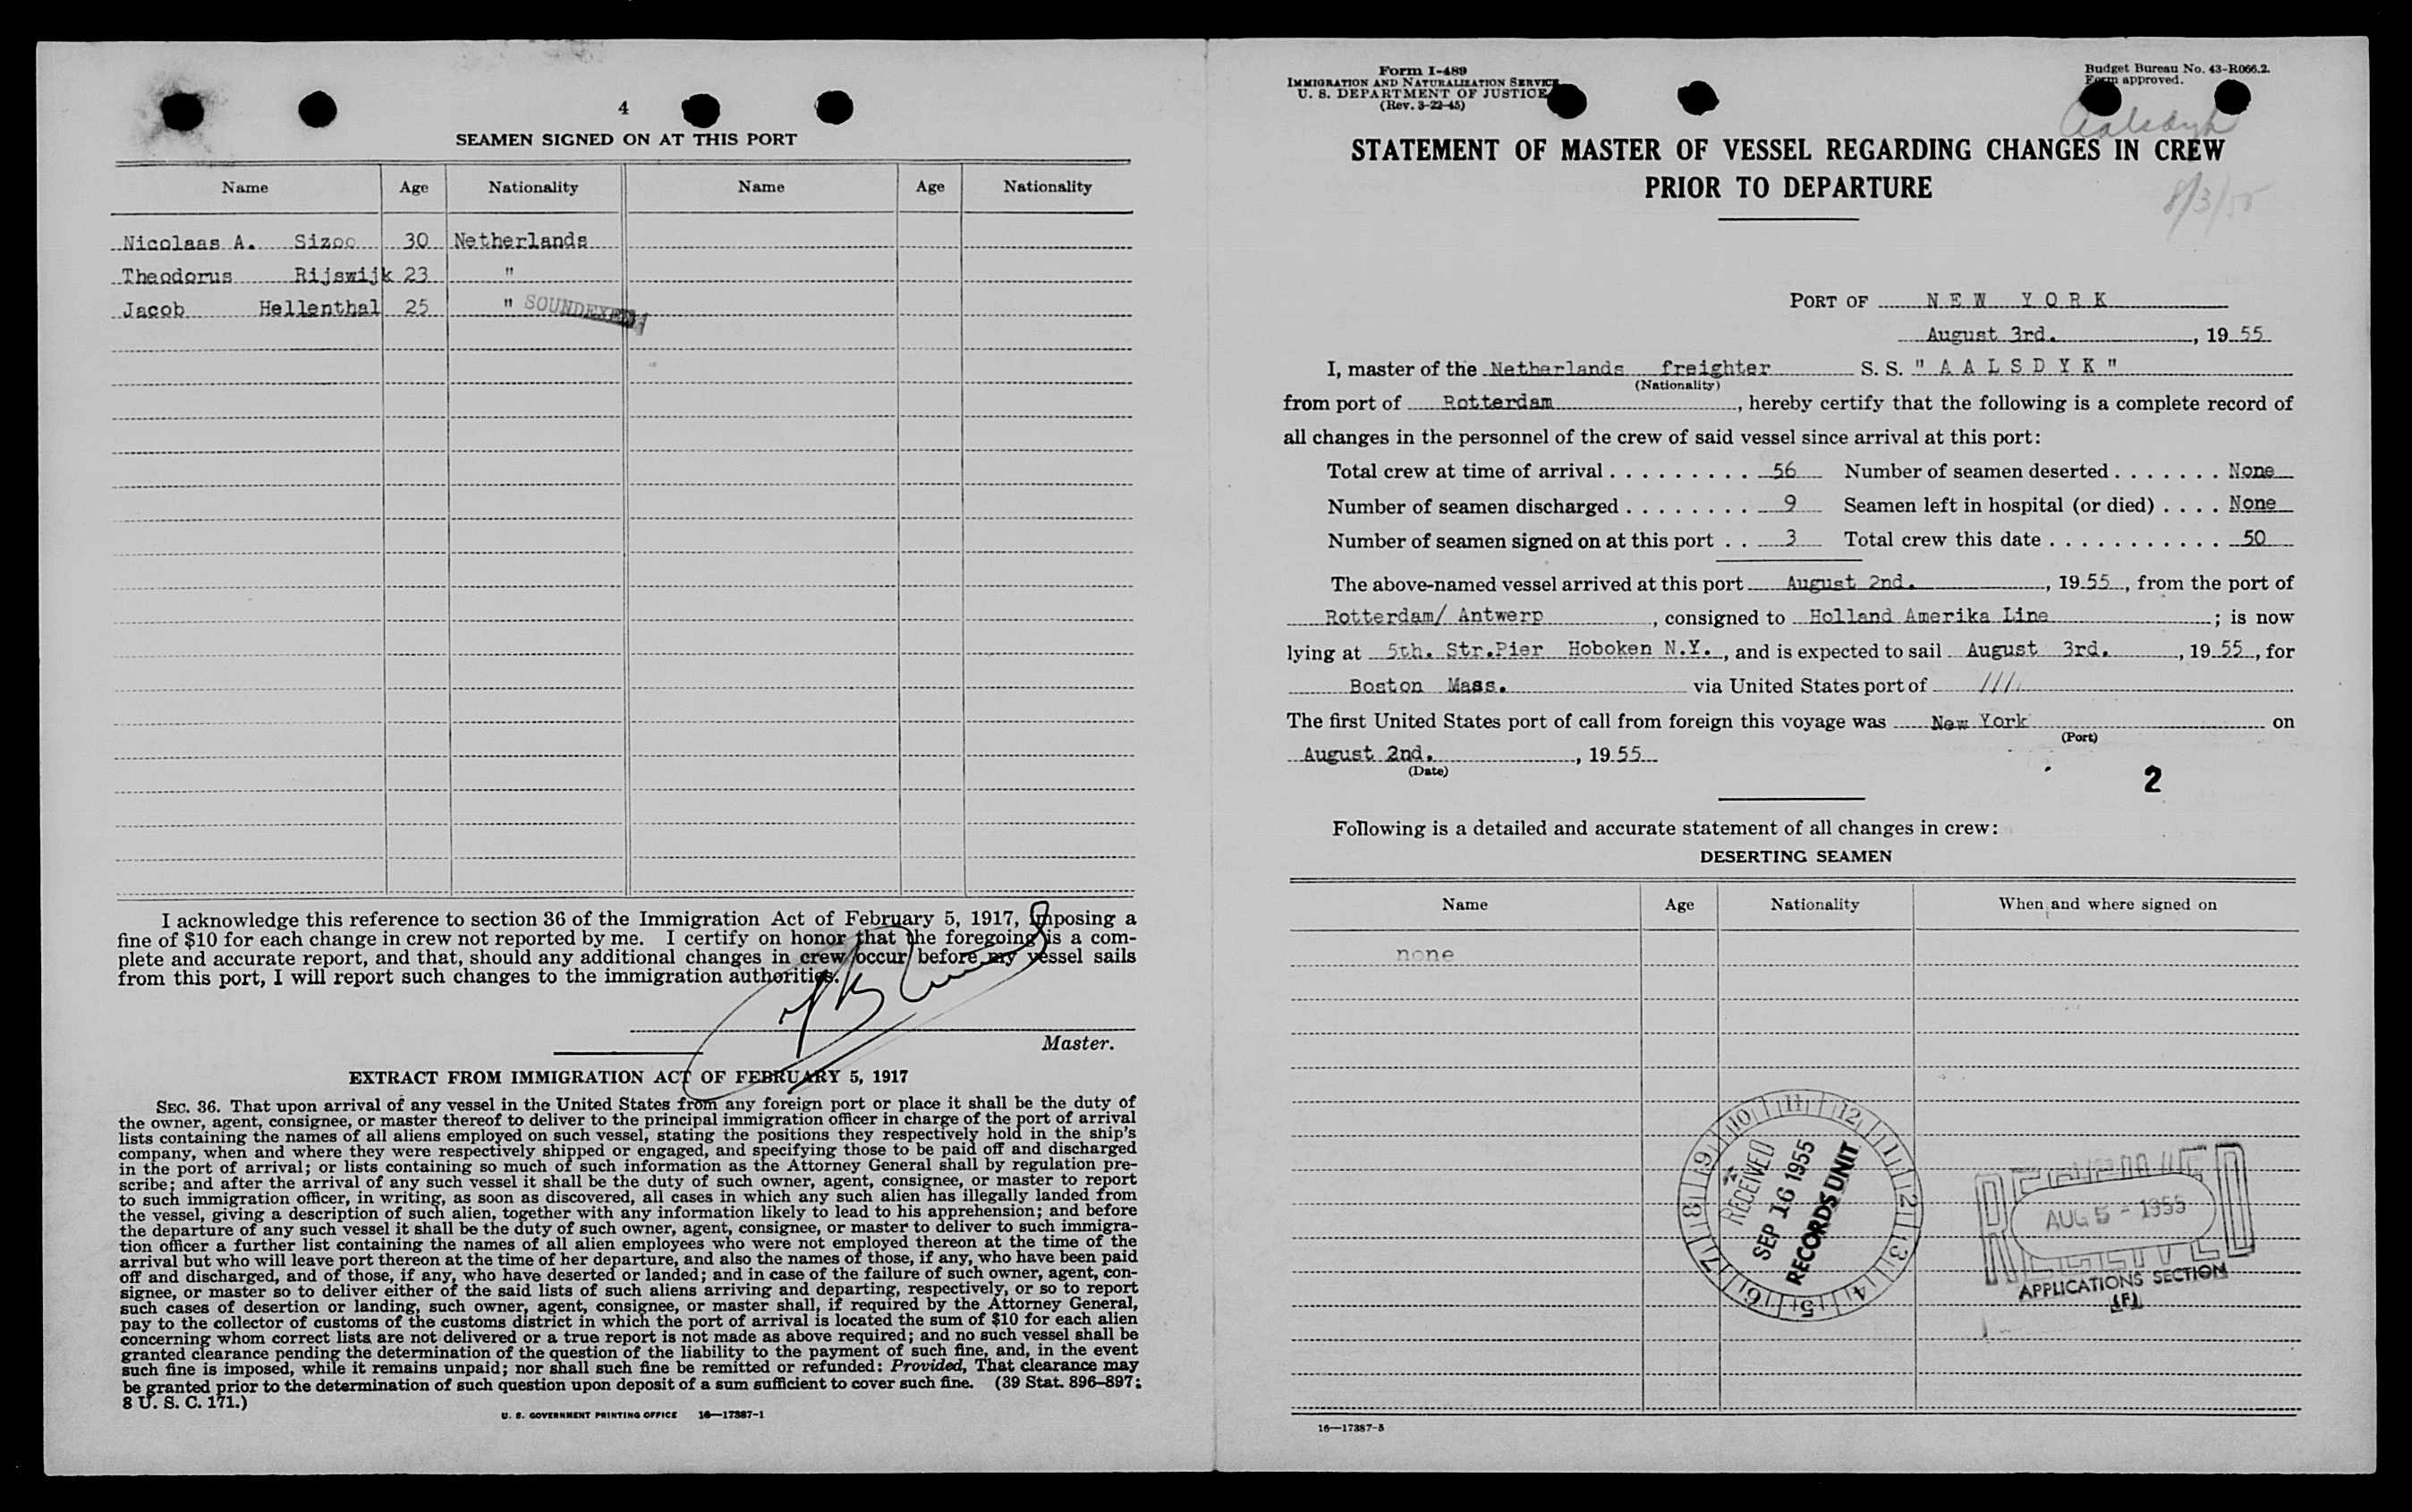 4
SEAMEN SIGNED ON AT THIS PORT
Name Age Nationality Name Age Nationality
Nicolaas A. Sizoo 30 Netherlands
Theodorus Rijswijk 23 "
Jacob Hellenthal 25 " SOUNDEXED
I acknowledge this reference to section 36 of the Immigration Act of February 5, 1917, imposing a
fine of $10 for each change in crew not reported by me. I certify on honor that the foregoing is a com-
plete and accurate report, and that, should any additional changes in crew occur before my vessel sails
from this port, I will report such changes to the immigration authorities.
Master.
EXTRACT FROM IMMIGRATION ACT OF FEBRUARY 5, 1917
SEC. 36. That upon arrival of any vessel in the United States from any foreign port or place it shall be the duty of
the owner, agent, consignee, or master thereof to deliver to the principal immigration officer in charge of the port of arrival
lists containing the names of all aliens employed on such vessel, stating the positions they respectively hold in the ship's
company, when and where they were respectively shipped or engaged, and specifying those to be paid off and discharged
in the port of arrival; or lists containing so much of such information as the Attorney General shall by regulation pre-
scribe; and after the arrival of any such vessel it shall be the duty of such owner, agent, consignee, or master to report
to such immigration officer, in writing, as soon as discovered, all cases in which any such alien has illegally landed from
the vessel, giving a description of such alien, together with any information likely to lead to his apprehension; and before
the departure of any such vessel it shall be the duty of such owner, agent, consignee, or master to deliver to such immigra-
tion officer a further list containing the names of all alien employees who were not employed thereon at the time of the
arrival but who will leave port thereon at the time of her departure, and also the names of those, if any, who have been paid
off and discharged, and of those, if any, who have deserted or landed; and in case of the failure of such owner, agent, con-
signee, or master so to deliver either of the said lists of such aliens arriving and departing, respectively, or so to report
such cases of desertion or landing, such owner, agent, consignee, or master shall, if required by the Attorney General,
pay to the collector of customs of the customs district in which the port of arrival is located the sum of $10 for each alien
concerning whom correct lists are not delivered or a true report is not made as above required; and no such vessel shall be
granted clearance pending the determination of the question of the liability to the payment of such fine, and, in the event
such fine is imposed, while it remains unpaid; nor shall such fine be remitted or refunded: Provided, That clearance may
be granted prior to the determination of such question upon deposit of a sum sufficient to cover such fine. (39 Stat. 896–897;
8 U. S. C. 171.)
U. S. GOVERNMENT PRINTING OFFICE 16—17387-1
Form I-489
IMMIGRATION AND NATURALIZATION SERVICE
U. S. DEPARTMENT OF JUSTICE
(Rev. 3-22-45)
Budget Bureau No. 43-R066.2.
Form approved.
Aalsdyk
STATEMENT OF MASTER OF VESSEL REGARDING CHANGES IN CREW
PRIOR TO DEPARTURE
8/3/55
PORT OF NEW YORK
August 3rd. , 19 55
I, master of the Netherlands freighter S. S. " A A L S D Y K "
(Nationality)
from port of Rotterdam , hereby certify that the following is a complete record of
all changes in the personnel of the crew of said vessel since arrival at this port:
Total crew at time of arrival . . . . . . . . . . 56 Number of seamen deserted . . . . . . . None
Number of seamen discharged . . . . . . . . . 9 Seamen left in hospital (or died) . . . . None
Number of seamen signed on at this port . . 3 Total crew this date . . . . . . . . . . . . 50
The above-named vessel arrived at this port August 2nd. , 19 55 , from the port of
Rotterdam/ Antwerp , consigned to Holland Amerika Line ; is now
lying at 5th. Str.Pier Hoboken N.Y. , and is expected to sail August 3rd. , 19 55 , for
Boston Mass. via United States port of ///
The first United States port of call from foreign this voyage was New York on
(Port)
August 2nd. , 19 55
(Date)
2
Following is a detailed and accurate statement of all changes in crew:
DESERTING SEAMEN
Name Age Nationality When and where signed on
none
10 11 12 1 2 3 4 5 6 7 8 9
RECEIVED
SEP 16 1955
RECORDS UNIT
AUG 5 - 1955
RECEIVED
APPLICATIONS SECTION
(F)
16—17387-5